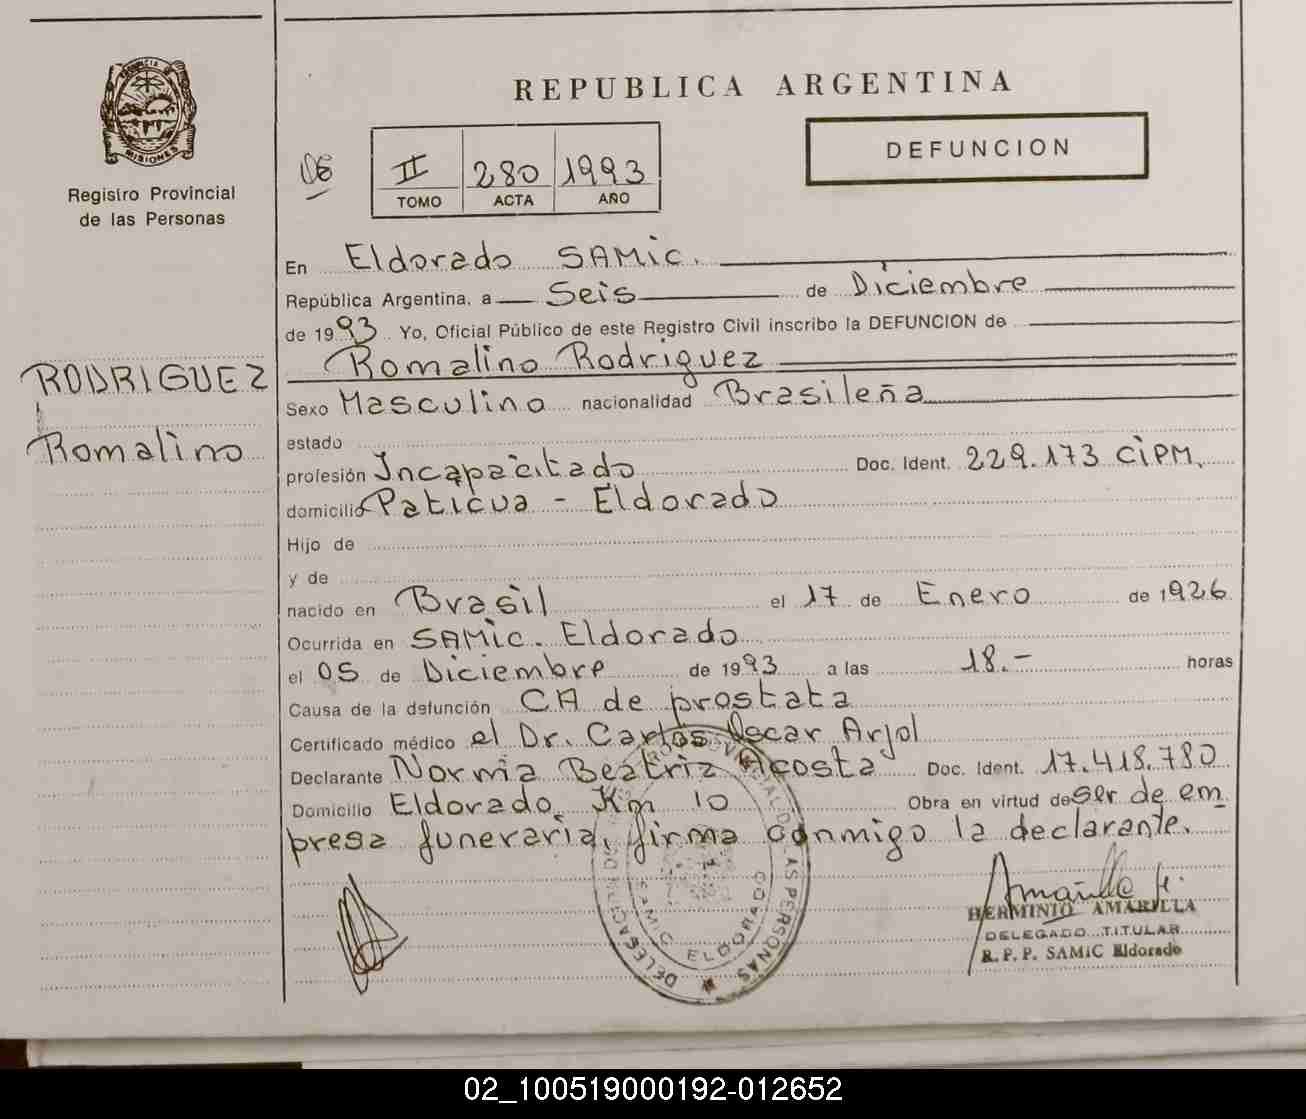 PROVINCIA DE
MISIONES
Registro Provincial
de las Personas
RODRIGUEZ
Romalino
REPUBLICA ARGENTINA
DEFUNCION
II 280 1993
TOMO ACTA AÑO
En Eldorado SAMiC.
República Argentina, a Seis de Diciembre
de 1993. Yo, Oficial Público de este Registro Civil inscribo la DEFUNCION de
Romalino Rodriguez
Sexo Masculino nacionalidad Brasileña
estado
profesión Incapacitado Doc. Ident. 229.173 CiPM.
domicilio Paticua - Eldorado
Hijo de
y de
nacido en Brasil el 17 de Enero de 1926
Ocurrida en SAMiC. Eldorado
el 05 de Diciembre de 1993 a las 18.- horas
Causa de la defunción CA de prostata
Certificado médico el Dr. Carlos Oscar Arjol
Declarante Norma Beatriz Acosta Doc. Ident. 17.418.780
Domicilio Eldorado Km 10 Obra en virtud de ser de em
presa funeraria, firma conmigo la declarante.
DE LAS PERSONAS
SAMIC ELDORADO
Amarilla H.
HERMINIO AMARILLA
DELEGADO TITULAR
R. P. P. SAMiC Eldorado
02_100519000192-012652